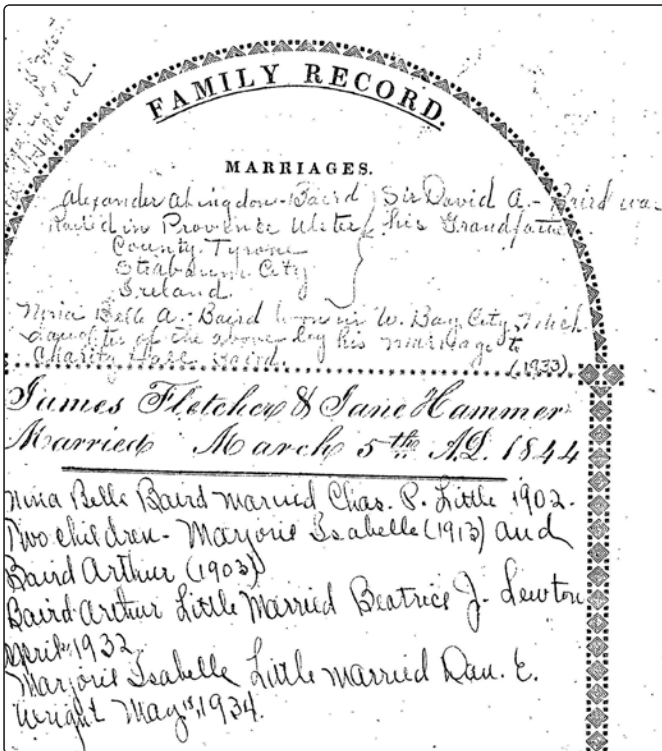 Hyland.
FAMILY RECORD.
MARRIAGES.
Alexander Abingdon-Baird } Sir David A.- Baird was
in Province Ulster his Grandfather.
County. Tyrone
City
Ireland.
Belle A.- Baird born in W. Bay City, Mich.
daughter of the above by his marriage to
Charity Baird.
(1933)
James Fletcher & Jane Hammer
Married March 5th A.D. 1844
Nina Belle Baird married Chas. P. Little 1902.
Two children - Marjorie Isabelle (1913) and
Baird Arthur (1903)
Baird Arthur Little Married Beatrice J. Lewton
April 1932
Marjorie Isabelle Little married Dan. E.
Wright May 1934.